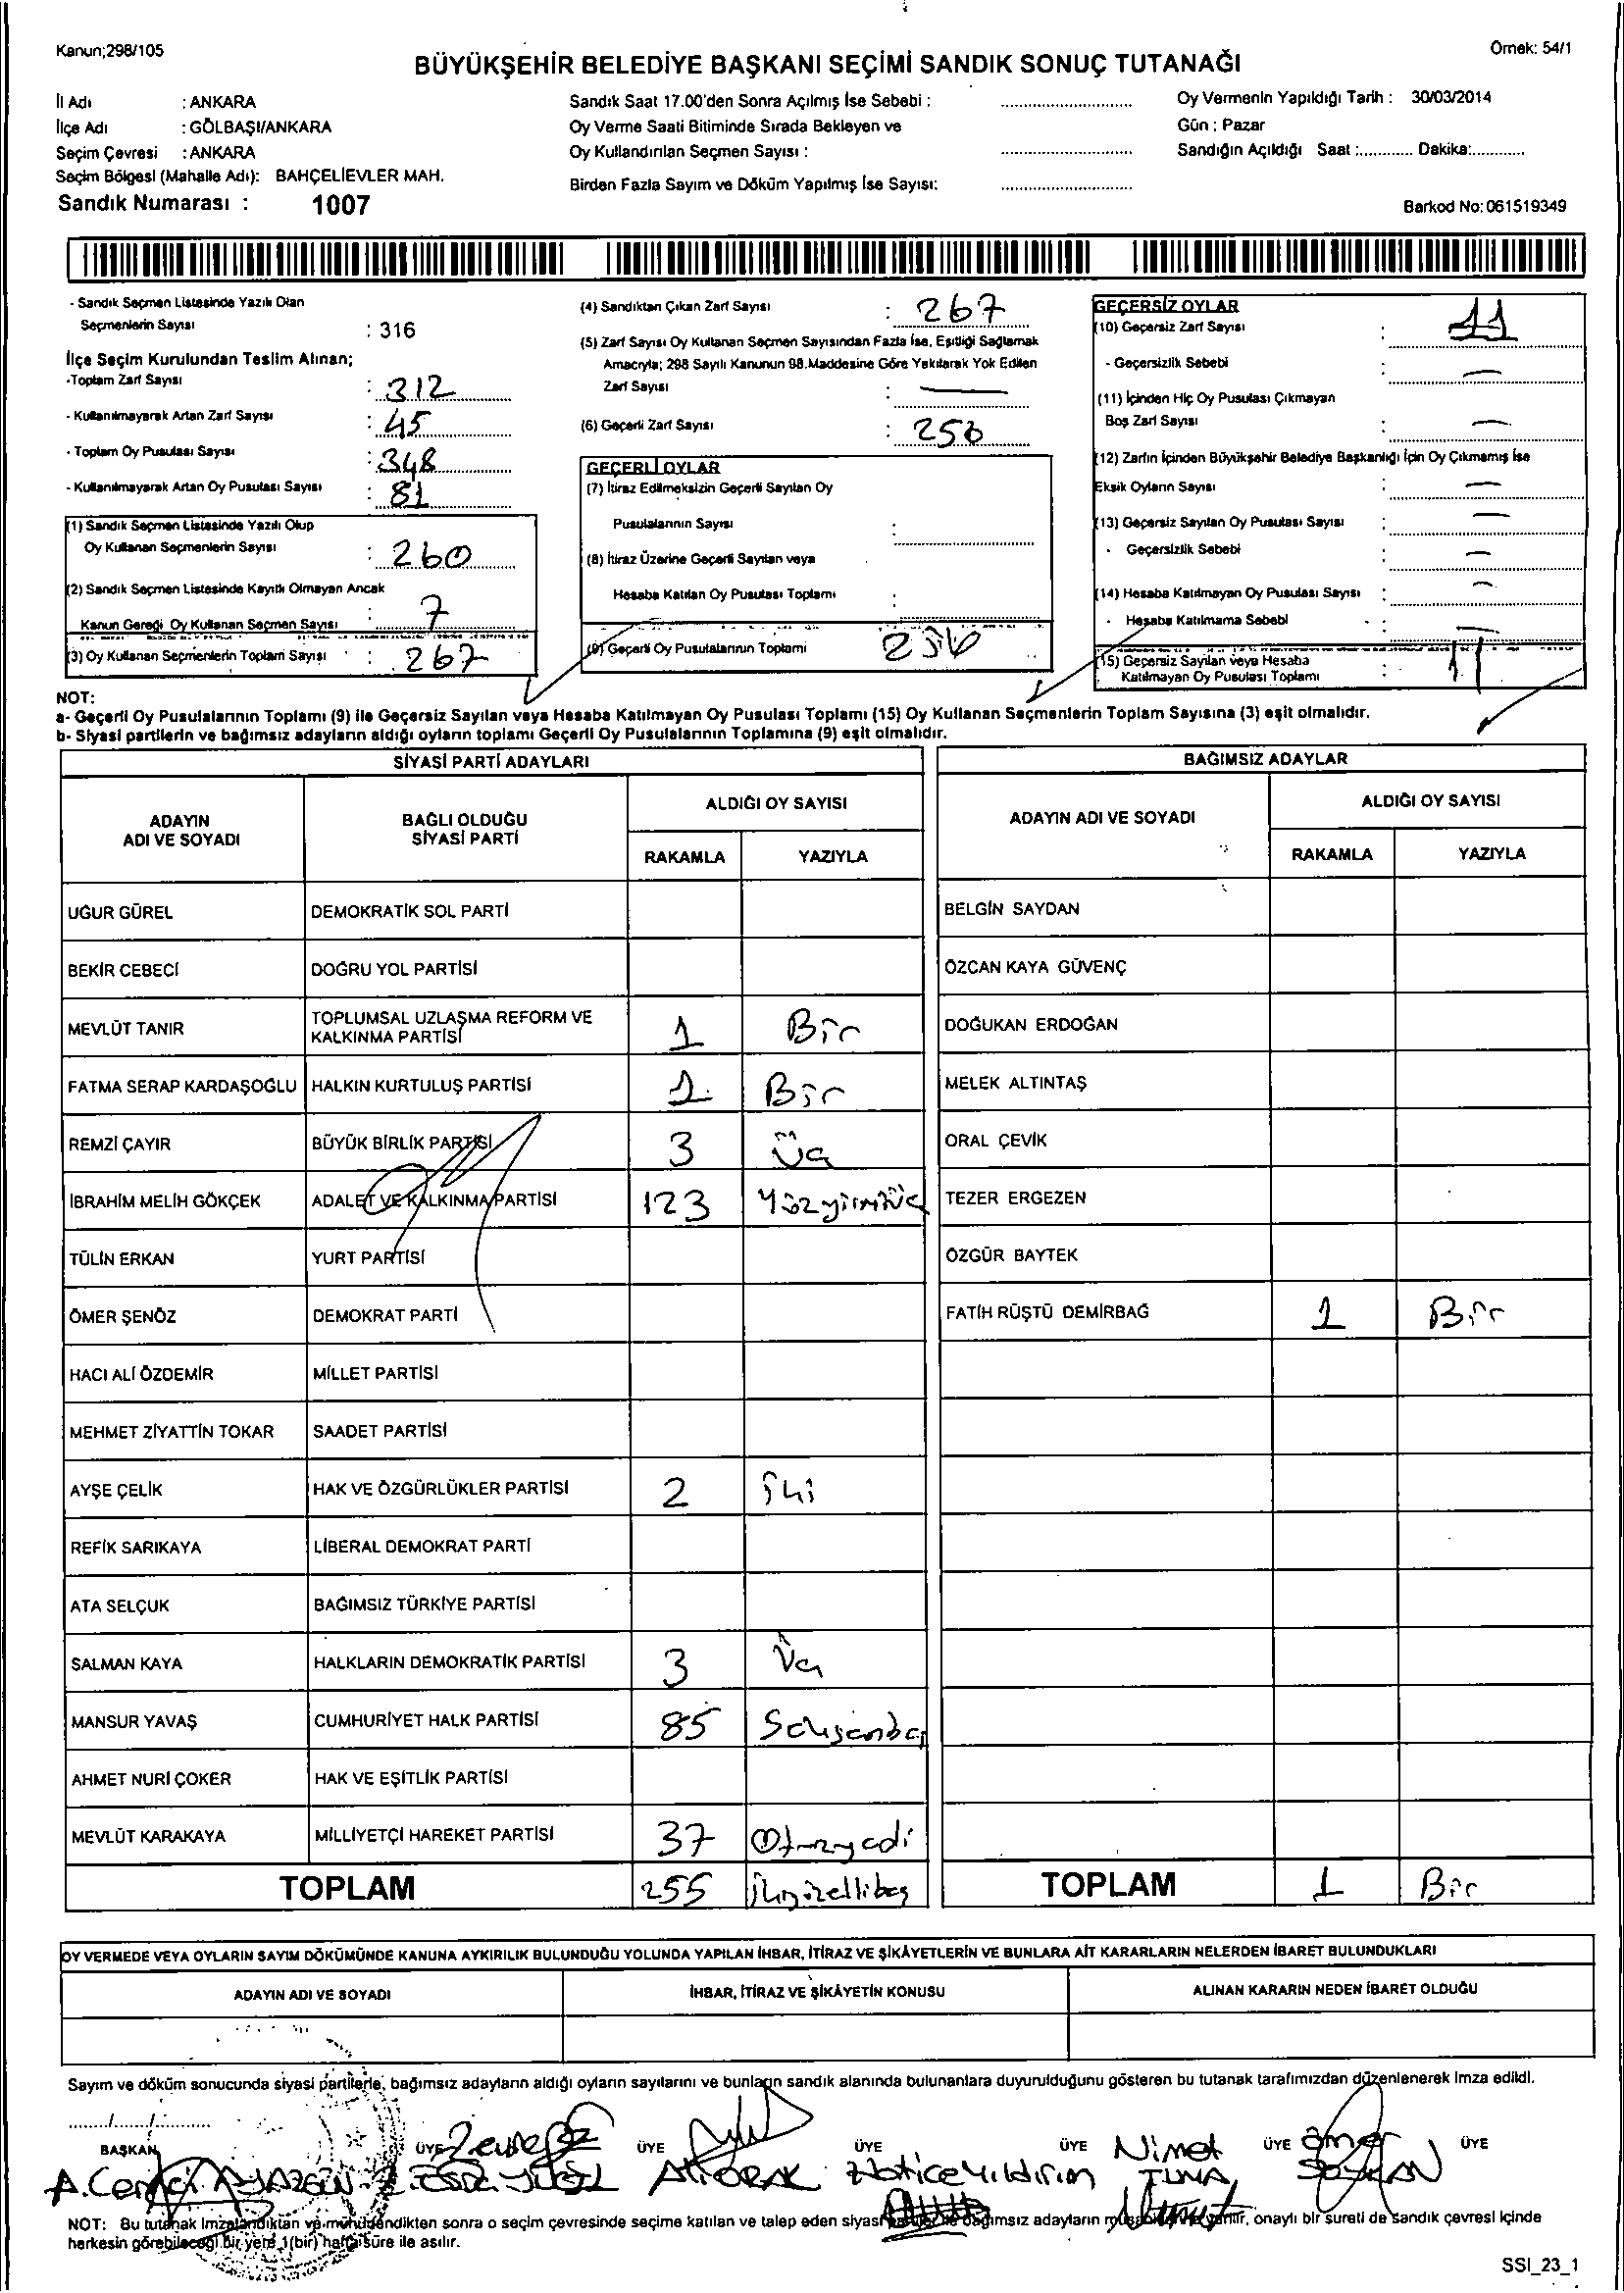 Kanun;298/105
Örnek: 54/1
BÜYÜKŞEHİR BELEDİYE BAŞKANI SEÇİMİ SANDIK SONUÇ TUTANAĞI
İl Adı : ANKARA
İlçe Adı : GÖLBAŞI/ANKARA
Seçim Çevresi : ANKARA
Seçim Bölgesi (Mahalle Adı): BAHÇELİEVLER MAH.
Sandık Numarası : 1007
Sandık Saat 17.00'den Sonra Açılmış İse Sebebi : ..........
Oy Verme Saati Bitiminde Sırada Bekleyen ve
Oy Kullandırılan Seçmen Sayısı : ..........
Birden Fazla Sayım ve Döküm Yapılmış İse Sayısı: ..........
Oy Vermenin Yapıldığı Tarih : 30/03/2014
Gün : Pazar
Sandığın Açıldığı Saat :............ Dakika:............
Barkod No: 061519349
- Sandık Seçmen Listesinde Yazılı Olan
Seçmenlerin Sayısı : 316
İlçe Seçim Kurulundan Teslim Alınan;
-Toplam Zarf Sayısı : 312
- Kullanılmayarak Artan Zarf Sayısı : 45
- Toplam Oy Pusulası Sayısı : 348
- Kullanılmayarak Artan Oy Pusulası Sayısı : 81
(1) Sandık Seçmen Listesinde Yazılı Olup
Oy Kullanan Seçmenlerin Sayısı : 260
(2) Sandık Seçmen Listesinde Kayıtlı Olmayan Ancak
Kanun Gereği Oy Kullanan Seçmen Sayısı : 7
(3) Oy Kullanan Seçmenlerin Toplam Sayısı : 267
(4) Sandıktan Çıkan Zarf Sayısı : 267
(5) Zarf Sayısı Oy Kullanan Seçmen Sayısından Fazla İse, Eşitliği Sağlamak
Amacıyla; 298 Sayılı Kanunun 98.Maddesine Göre Yakılarak Yok Edilen
Zarf Sayısı : —
(6) Geçerli Zarf Sayısı : 256
GEÇERLİ OYLAR
(7) İtiraz Edilmeksizin Geçerli Sayılan Oy
Pusulalarının Sayısı :
(8) İtiraz Üzerine Geçerli Sayılan veya
Hesaba Katılan Oy Pusulası Toplamı :
(9) Geçerli Oy Pusulalarının Toplamı 256
GEÇERSİZ OYLAR
(10) Geçersiz Zarf Sayısı : 11
- Geçersizlik Sebebi : —
(11) İçinden Hiç Oy Pusulası Çıkmayan
Boş Zarf Sayısı : —
(12) Zarfın İçinden Büyükşehir Belediye Başkanlığı İçin Oy Çıkmamış İse
Eksik Oyların Sayısı : —
(13) Geçersiz Sayılan Oy Pusulası Sayısı : —
- Geçersizlik Sebebi : —
(14) Hesaba Katılmayan Oy Pusulası Sayısı : —
- Hesaba Katılmama Sebebi : —
(15) Geçersiz Sayılan veya Hesaba
Katılmayan Oy Pusulası Toplamı : 11
NOT:
a- Geçerli Oy Pusulalarının Toplamı (9) ile Geçersiz Sayılan veya Hesaba Katılmayan Oy Pusulası Toplamı (15) Oy Kullanan Seçmenlerin Toplam Sayısına (3) eşit olmalıdır.
b- Siyasi partilerin ve bağımsız adayların aldığı oyların toplamı Geçerli Oy Pusulalarının Toplamına (9) eşit olmalıdır.
SİYASİ PARTİ ADAYLARI
ADAYIN ADI VE SOYADI
BAĞLI OLDUĞU SİYASİ PARTİ
ALDIĞI OY SAYISI
RAKAMLA YAZIYLA
UĞUR GÜREL DEMOKRATİK SOL PARTİ
BEKİR CEBECİ DOĞRU YOL PARTİSİ
MEVLÜT TANIR TOPLUMSAL UZLAŞMA REFORM VE KALKINMA PARTİSİ 1 Bir
FATMA SERAP KARDAŞOĞLU HALKIN KURTULUŞ PARTİSİ 1 Bir
REMZİ ÇAYIR BÜYÜK BİRLİK PARTİSİ 3 Üç
İBRAHİM MELİH GÖKÇEK ADALET VE KALKINMA PARTİSİ 123 Yüzyirmiüç
TÜLİN ERKAN YURT PARTİSİ
ÖMER ŞENÖZ DEMOKRAT PARTİ
HACI ALİ ÖZDEMİR MİLLET PARTİSİ
MEHMET ZİYATTİN TOKAR SAADET PARTİSİ
AYŞE ÇELİK HAK VE ÖZGÜRLÜKLER PARTİSİ 2 İki
REFİK SARIKAYA LİBERAL DEMOKRAT PARTİ
ATA SELÇUK BAĞIMSIZ TÜRKİYE PARTİSİ
SALMAN KAYA HALKLARIN DEMOKRATİK PARTİSİ 3 Üç
MANSUR YAVAŞ CUMHURİYET HALK PARTİSİ 85 Seksenbeş
AHMET NURİ ÇOKER HAK VE EŞİTLİK PARTİSİ
MEVLÜT KARAKAYA MİLLİYETÇİ HAREKET PARTİSİ 37 Otuzyedi
TOPLAM 255 İkiyüzellibeş
BAĞIMSIZ ADAYLAR
ADAYIN ADI VE SOYADI
ALDIĞI OY SAYISI
RAKAMLA YAZIYLA
BELGİN SAYDAN
ÖZCAN KAYA GÜVENÇ
DOĞUKAN ERDOĞAN
MELEK ALTINTAŞ
ORAL ÇEVİK
TEZER ERGEZEN
ÖZGÜR BAYTEK
FATİH RÜŞTÜ DEMİRBAĞ 1 Bir
TOPLAM 1 Bir
OY VERMEDE VEYA OYLARIN SAYIM DÖKÜMÜNDE KANUNA AYKIRILIK BULUNDUĞU YOLUNDA YAPILAN İHBAR, İTİRAZ VE ŞİKÂYETLERİN VE BUNLARA AİT KARARLARIN NELERDEN İBARET BULUNDUKLARI
ADAYIN ADI VE SOYADI İHBAR, İTİRAZ VE ŞİKÂYETİN KONUSU ALINAN KARARIN NEDEN İBARET OLDUĞU
Sayım ve döküm sonucunda siyasi partilerle, bağımsız adayların aldığı oyların sayılarını ve bunların sandık alanında bulunanlara duyurulduğunu gösteren bu tutanak tarafımızdan düzenlenerek imza edildi.
....../....../......
BAŞKAN ÜYE ÜYE ÜYE ÜYE ÜYE ÜYE
Hatice Yıldırım
Nimet
TUNA
Ömer
NOT: Bu tutanak imzalandıktan ve mühürlendikten sonra o seçim çevresinde seçime katılan ve talep eden siyasi bağımsız adayların onaylı bir sureti de sandık çevresi içinde
herkesin görebileceği bir yere 1(bir) hafta süre ile asılır.
SSI_23_1